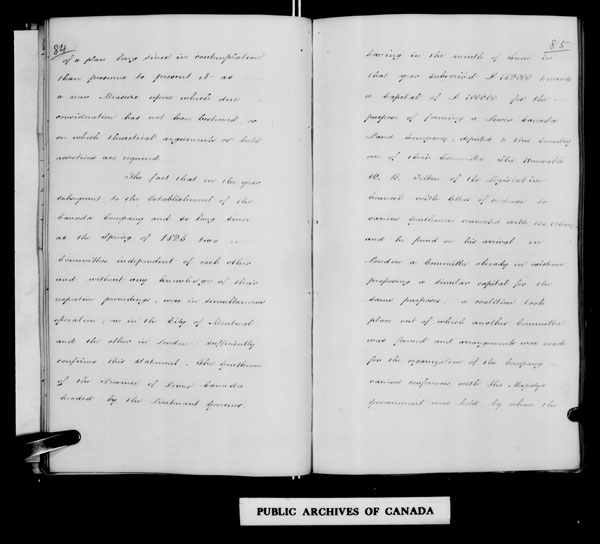 84
of a plan long since in contemplation
than presume to present it as
a new Measure upon which due
consideration has not been bestowed, or
on which theoretical arguments or bold
assertions are required.
The fact that in the year
subsequent to the Establishment of the
Canada Company and so long since
as the Spring of 1825 two
Committees independent of each other
and without any knowledge of their
respective proceedings, were in simultaneous
operation, one in the City of Montreal
and the other in London, sufficiently
confirms this statement. The Gentlemen
of the Province of Lower Canada
headed by the Lieutenant Governor.
85
having in the month of in
that year subscribed £ towards
a Capital of £ for the
purpose of forming a Lower Canada
Land Company, deputed to this Country
one of their Committee The Honorable
W. B. Felton of the Legislative
Council with letters of credence to
various Gentlemen connected with the
and he found on his arrival in
London a Committee already in existence
proposing a similar capital for the
same purposes, a coalition took
place out of which another Committee
was formed and arrangements were made
for the organization of the Company
various conferences with His Majestys
Government was held, by whom the
PUBLIC ARCHIVES OF CANADA